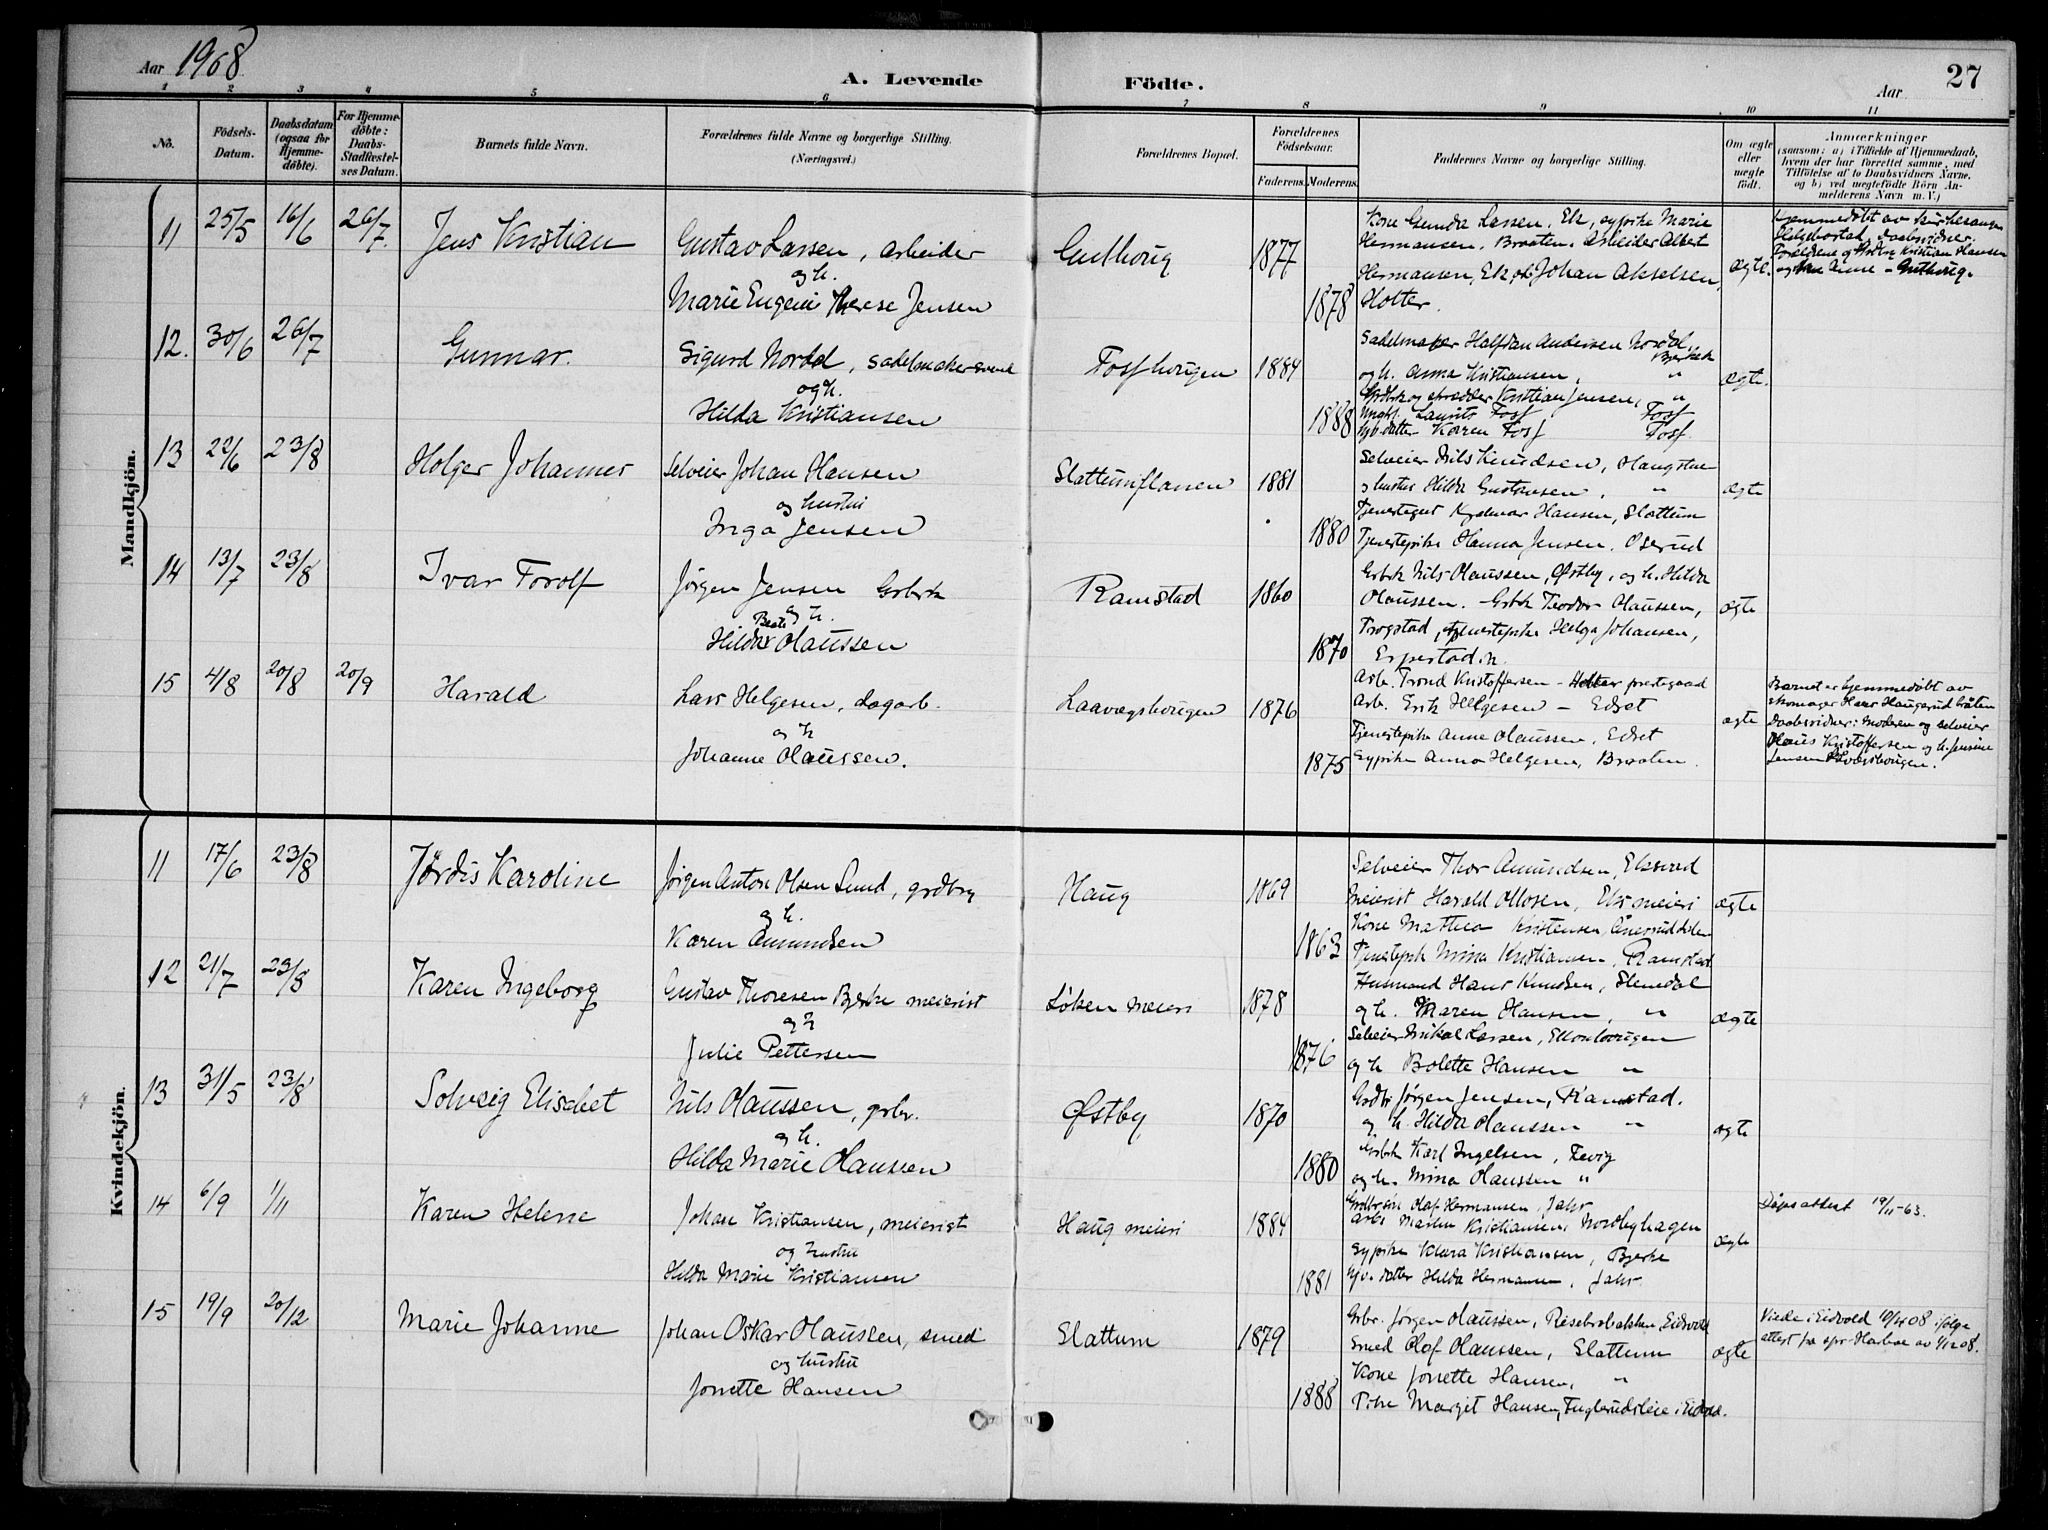 Aar 1908
A. Levende Födte.
Aar
27
1 2 3 4 5 6 7 8 9 10 11
No.
Födsels-Datum.
Daabsdatum (ogsaa for Hjemme-döbte).
For Hjemme-döbte: Daabs-Stadfæstel-ses Datum.
Barnets fulde Navn.
Forældrenes fulde Navne og borgerlige Stilling.
(Næringsvei.)
Forældrenes Bopæl.
Forældrenes Födselsaar.
Faderens. Moderens.
Faddernes Navne og borgerlige Stilling.
Om ægte eller uægte födt.
Anmærkninger
(saasom: a) i Tilfælde af Hjemmedaab,
hvem der har forrettet samme, med
Tilföielse af to Daabsvidners Navne,
og b) ved uegtefödte Börn An-
melderens Navn m. V.)
Mandkjön.
11 25/5 16/6 26/7 Jens Kristian
Gustav Larsen, arbeider
og h.
Marie Eugenie Therese Jensen
Gulhoug 1877
1878
Kone Gunda Larsen, Ek, gypike Marie
Hermansen, Braaten. Arbeider Albert
Hermansen, Ek og Johan Akselsen,
Holter.
ægte.
Hjemmedøbt av
Helgebostad, Daabsvidner:
Forældrene og Kristian Hansen
og Anne
12. 30/6 26/7 Gunnar.
Sigurd Nordal, sadelmakersvend
og h.
Hilda Kristiansen
Fosshougen 1884
1888
Sadelmaker Halfdan Andersen Nordal,
Bjerke
og h. Anna Kristiansen, "
og skrædder Kristian Jensen, "
Ungk. Laurits Foss Foss
Gjb.datter Karen Foss Foss
ægte.
13 22/6 23/8 Holger Johannes
Selveier Johan Hansen
og hustru
Inga Jensen
Slattumflanen 1881
1880
Selveier Nils Knudsen, Haugstue
og hustru Hilda Gustavsen, "
Tjenestegut Hansen, Slattum
Tjenestepike Hanna Jensen, Oserud
ægte
14 13/7 23/8 Ivar Torolf
Jørgen Jensen Grbrk
og h.
Hilda Beate Olaussen
Ramstad 1860
1870
Grbrk Nils Olaussen, Østby, og h. Hilda
Olaussen. Grbrk Teodor Olaussen,
Trogstad, tjenestepike Helga Johansen,
ægte
15 4/8 20/8 20/9 Harald
Lars Helgesen, dagarb.
og h
Johanne Olaussen.
Laavegshougen 1876
1875
Arb. Trond Kristoffersen - Holter prestegaard
Arb. Erik Helgesen - Edset
Tjenestepike Anne Olaussen, Edset
Gypike Anna Helgesen, Braaten.
ægte
Barnet er hjemmedøbt av
skomager Hans Haugerudbråten
Daabsvidner: Moderen og selveier
Olaus Kristoffersen og h. Jensine
Jensen Låvegshougen.
Kvindekjön.
11 17/6 23/8 Jørdis Karoline
Jørgen Anton Olsen Lund, grdbrg
og h.
Karen Amundsen
Haug 1869
1863
Selveier Thor Amundsen, Ekset
Meierist Harald Olsen, Eks meieri
Kone Mathea Kristensen,
Tjenestepike Mina Kristiansen, Ramstad
ægte
12 21/7 23/8 Karen Ingeborg
Gustav Thoresen Bjerke meierist
og h
Julie Pettersen
Løken meieri 1878
1876
Husmand Hans Knudsen, Stenedal
og h. Maren Hansen, "
Selveier Mikal Larsen,
og h Bolette Hansen "
ægte
13 31/5 23/8 Solveig Elisabet
Nils Olaussen, grbr.
og h.
Hilda Marie Olaussen
Østby 1870
1880
Grdbr Jørgen Jensen, Ramstad.
og h. Hilda Olaussen "
Grbrk Karl Ingelsen, Tevig
og h. Mina Olaussen "
ægte
14 6/9 1/11 Karen Helene
Johan Kristiansen, meierist
og hustru
Hilda Marie Kristiansen
Haug meieri 1884
1881
Grdbrsøn Olaf Hermansen, Jahr
Arb. Martin Kristiansen, Nordbyhagen
Gypike Klara Kristiansen, Bjerke
Gjv. datter Hilda Hermansen, Jahr.
ægte
Dåpsattest 19/11-63.
15 19/9 20/12 Marie Johanne
Johan Oskar Olaussen, smed
og hustru
Jonette Hansen
Slattum 1879
1888
Grbr. Jørgen Olaussen, Risebrobakken, Eidsvold
Smed Olof Olaussen, Slattum
Kone Jonette Hansen, "
Pike Margit Hansen, Fuglerudsleie i Eidsv.
ægte
Viede i Eidsvold 08 ifølge
attest fra spr. Harboe av 1/12 08.